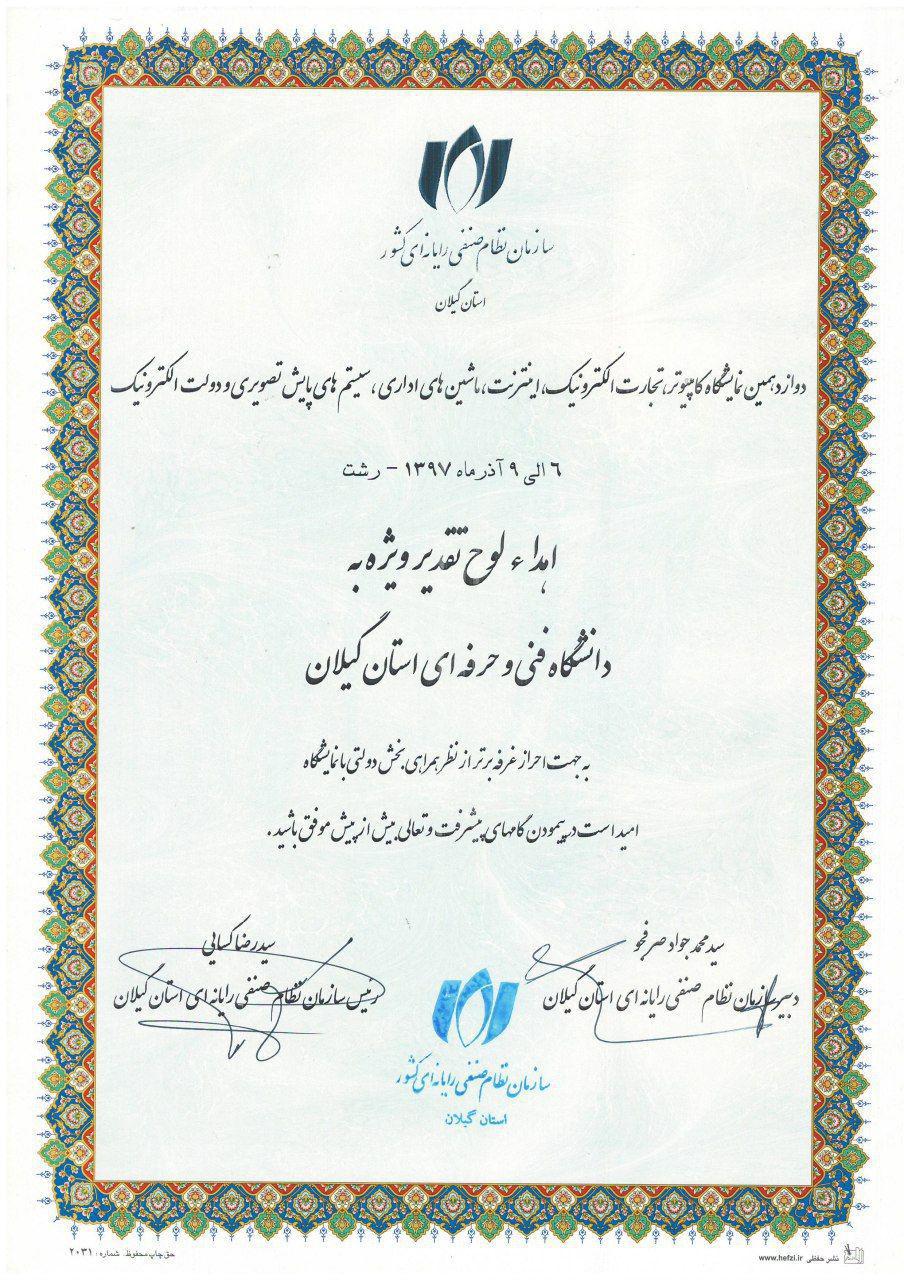 سازمان نظام صنفی رایانه‌ای کشور
استان گیلان
دوازدهمین نمایشگاه کامپیوتر، تجارت الکترونیک، اینترنت، ماشین های اداری، سیستم های پایش تصویری و دولت الکترونیک
۶ الی ۹ آذر ماه ۱۳۹۷ - رشت
اهداء لوح تقدیر ویژه به
دانشگاه فنی و حرفه ای استان گیلان
به جهت احراز غرفه برتر از نظر همراهی بخش دولتی با نمایشگاه
امید است در پیمودن گامهای پیشرفت و تعالی بیش از پیش موفق باشید.
سید محمد جواد صرفجو
دبیر سازمان نظام صنفی رایانه ای استان گیلان
سیدرضا کسایی
رئیس سازمان نظام صنفی رایانه ای استان گیلان
سازمان نظام صنفی رایانه‌ای کشور
استان گیلان
نشر حفظی www.hefzi.ir
حق چاپ محفوظ. شماره: ۲۰۳۱